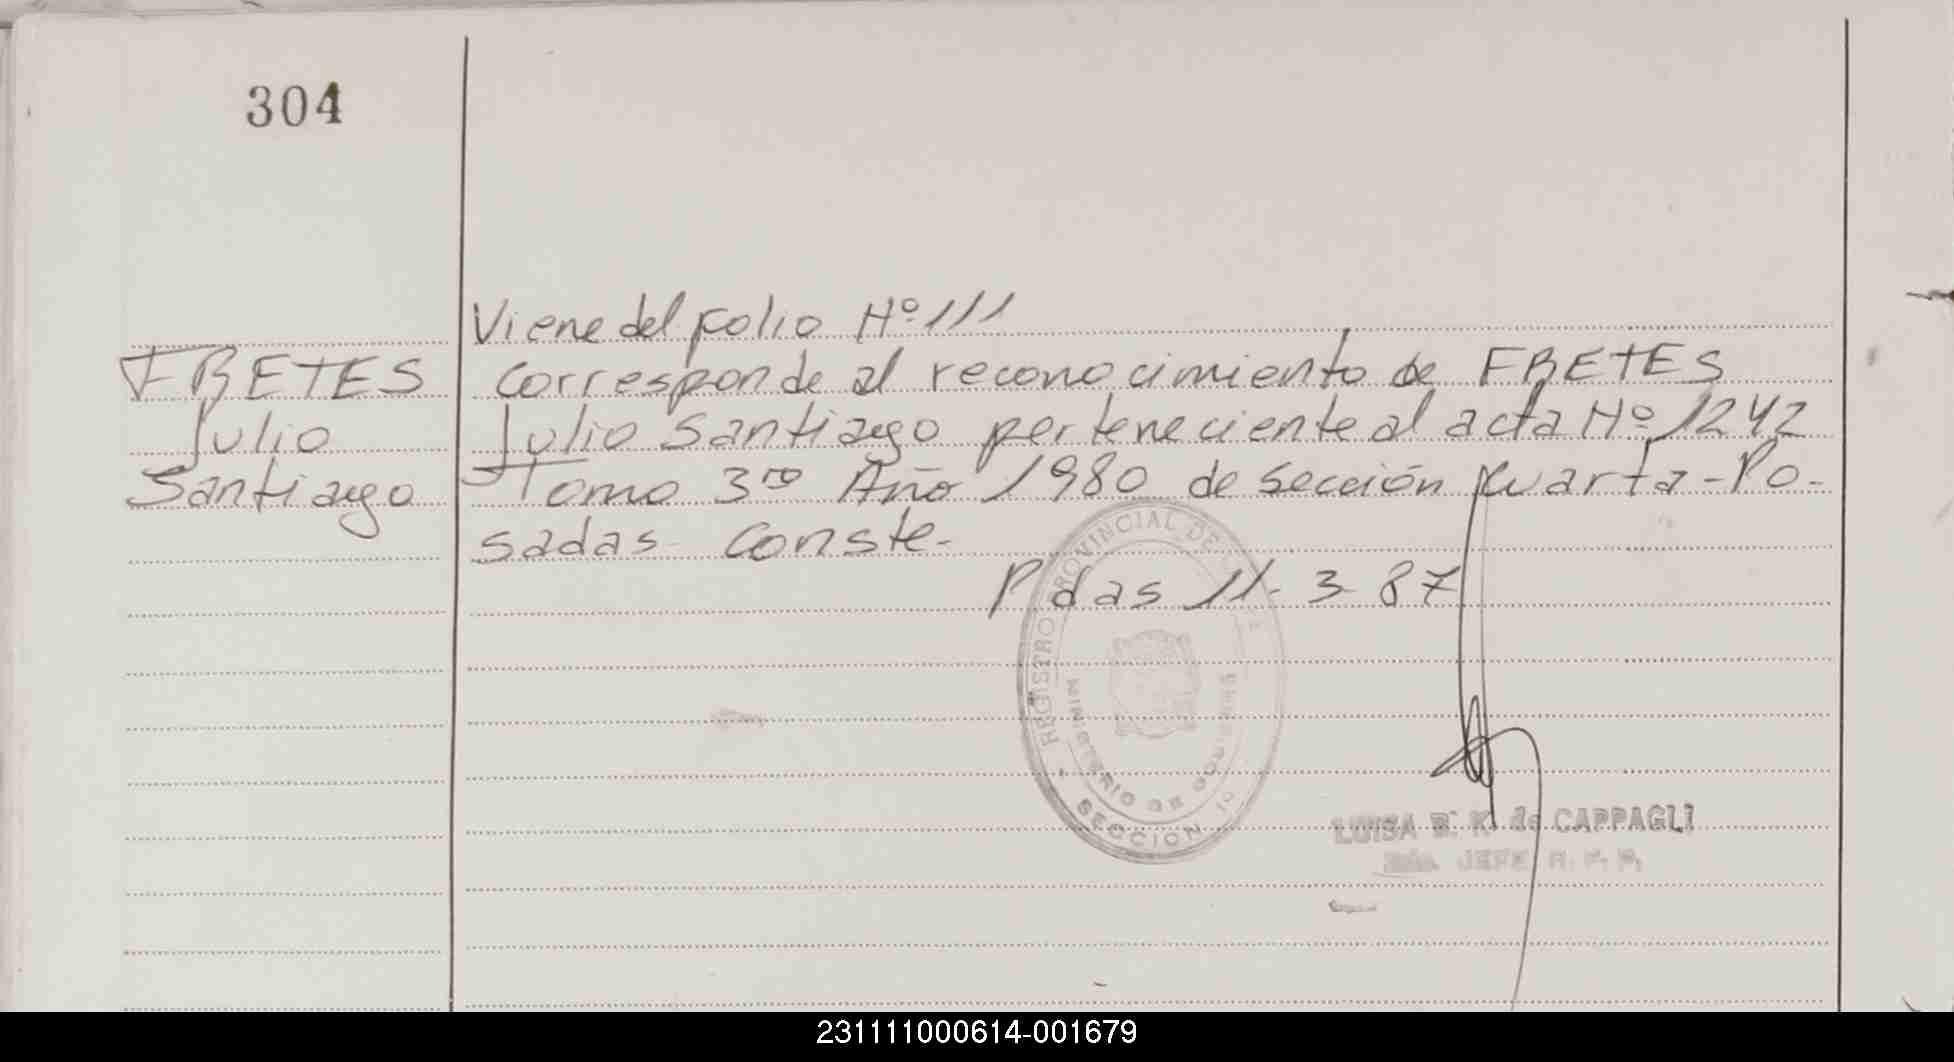 304
Viene del folio Nº 111
FRETES
Julio
Santiago
Corresponde al reconocimiento de FRETES
Julio Santiago perteneciente al acta Nº 1242
Tomo 3ro Año 1980 de Sección Cuarta-Po-
sadas Conste-
Pdas 11-3-87
REGISTRO PROVINCIAL DE
MINISTERIO DE GOBIERNO
SECCION
LUISA B. K. de CAPPAGLI
JEFE R. P. P.
231111000614-001679